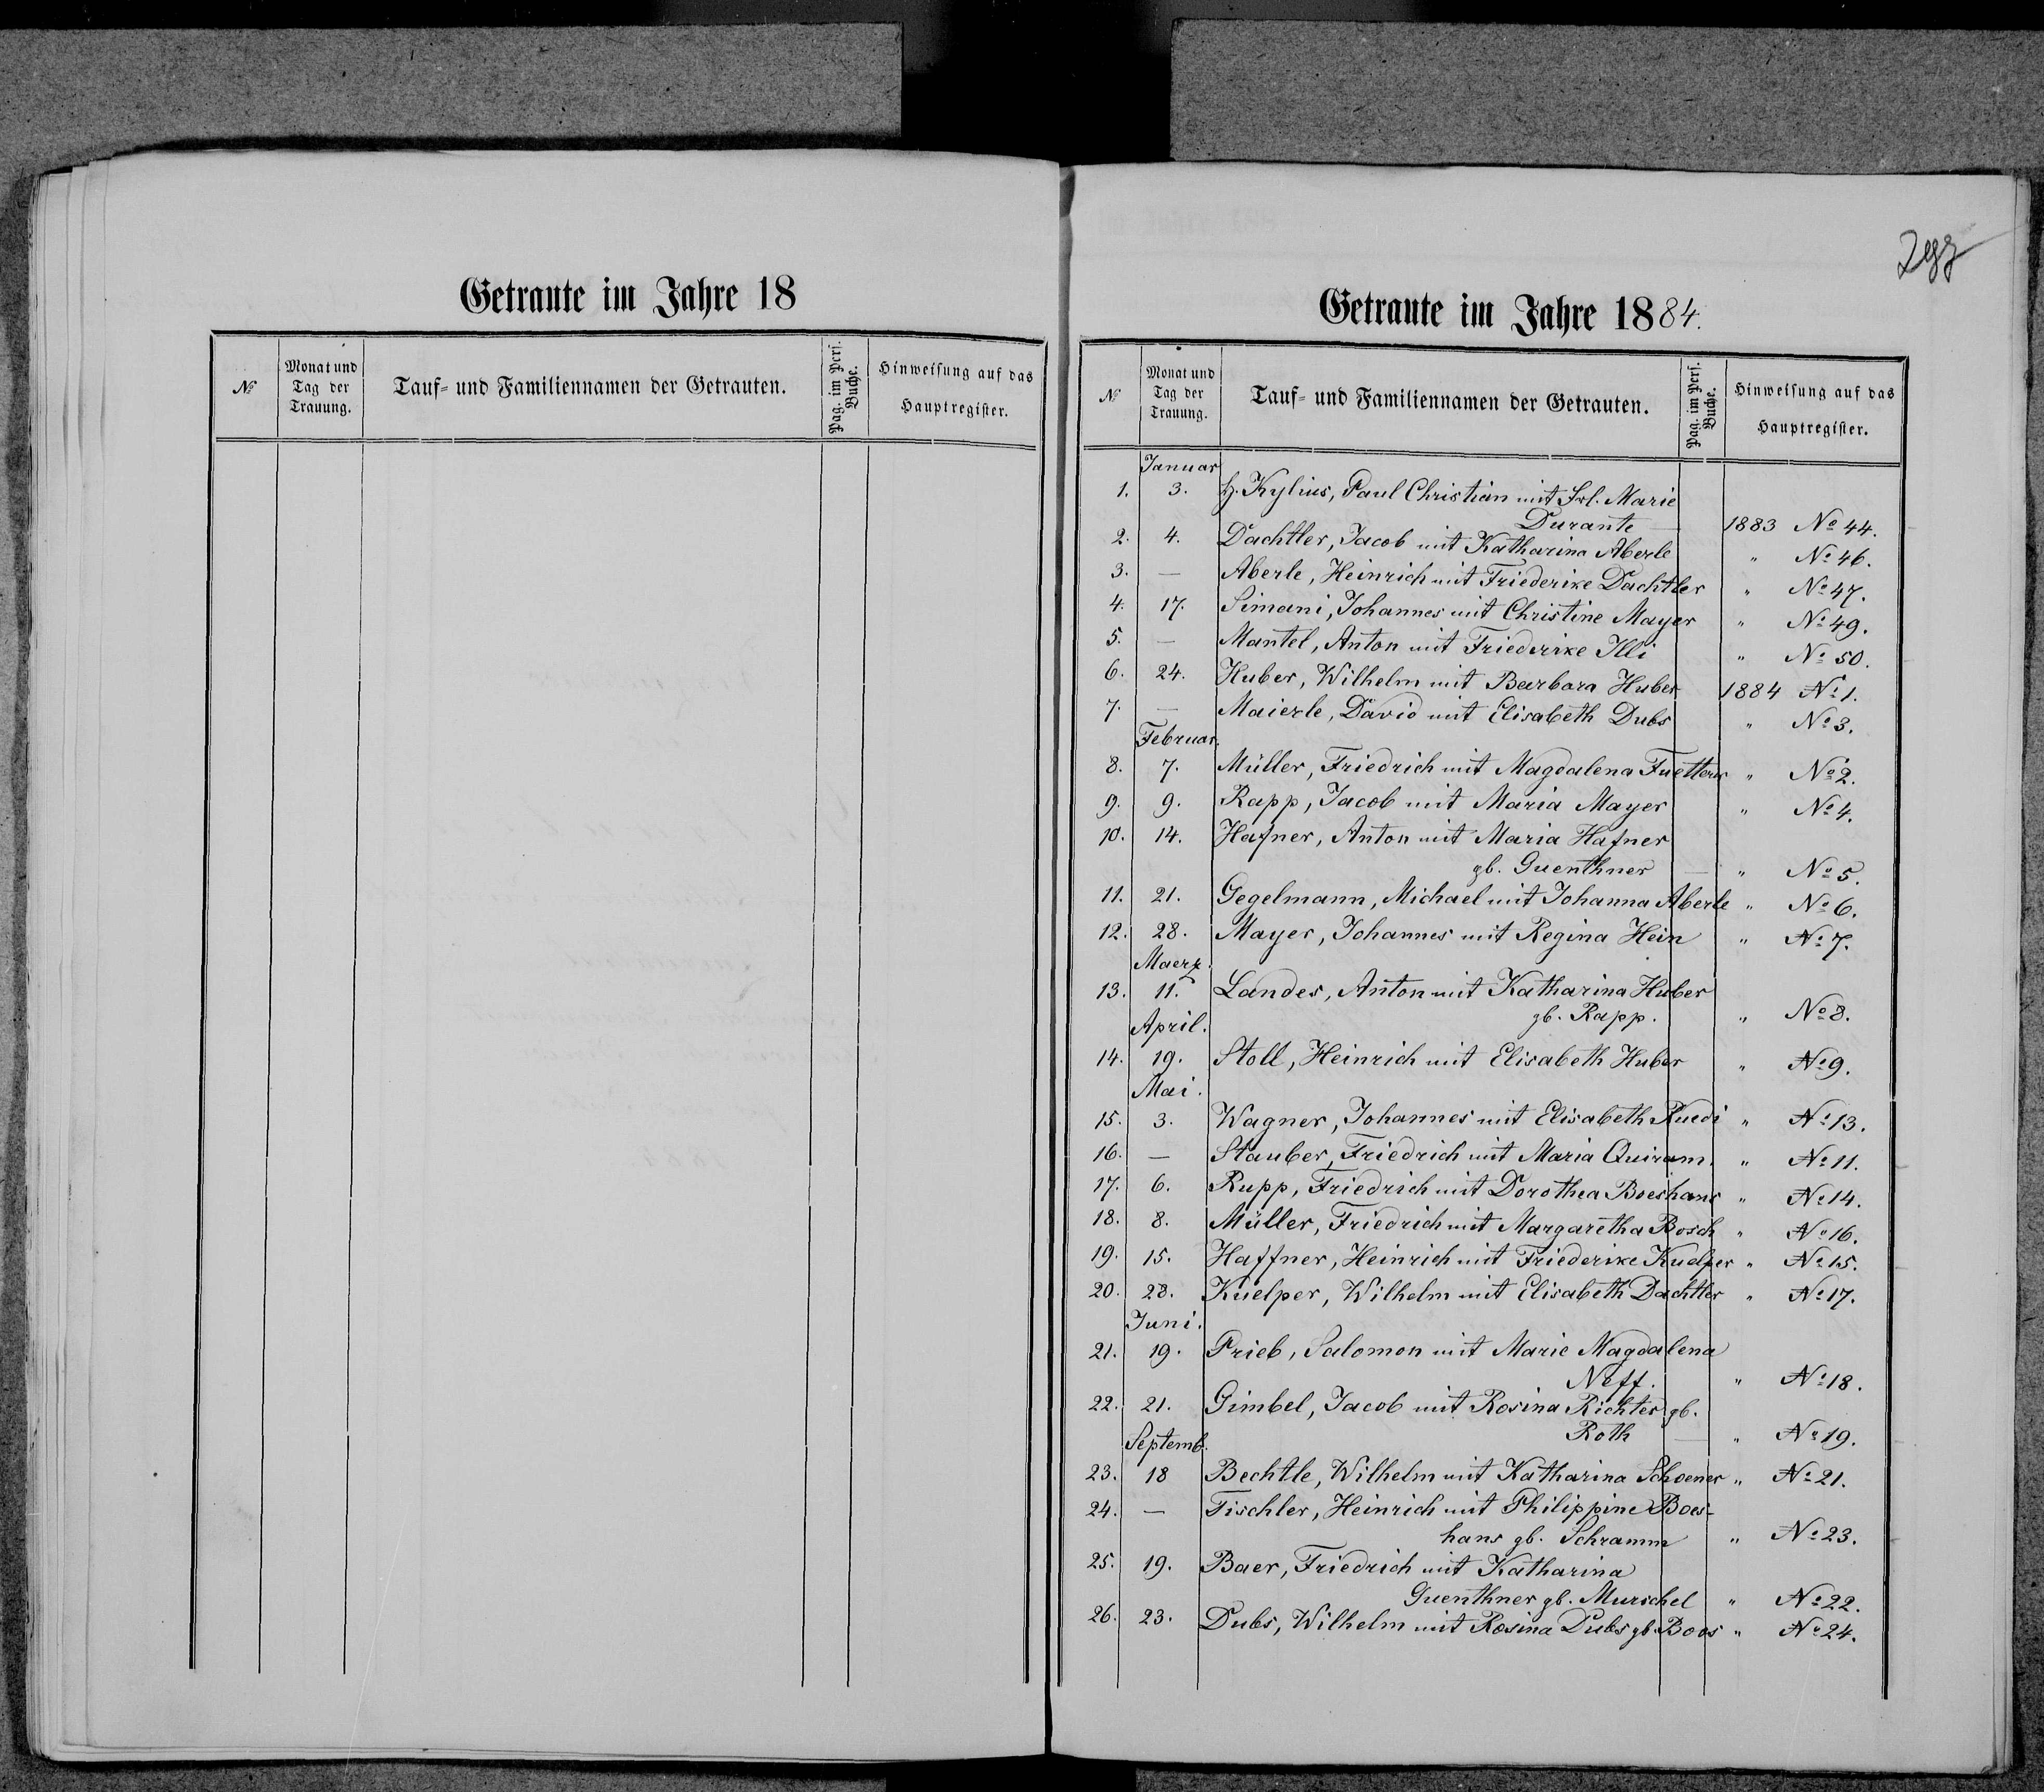 Getraute im Jahre 18
№ Monat und Tag der Trauung. Tauf- und Familiennamen der Getrauten. Pag. im Pers. Buche. Hinweisung auf das Hauptregister.
Getraute im Jahre 1884.
№ Monat und Tag der Trauung. Tauf- und Familiennamen der Getrauten. Pag. im Pers. Buche. Hinweisung auf das Hauptregister.
Januar
1. 3. H. Kylius, Paul Christian mit Frl. Marie
Durante — 1883 № 44.
2. 4. Dachtler, Jacob mit Katharina Aberle " № 46.
3. — Aberle, Heinrich mit Friederike Dachtler " № 47.
4. 17. Simani, Johannes mit Christine Mayer " № 49.
5. — Mantel, Anton mit Friederike Illi " № 50.
6. 24. Huber, Wilhelm mit Barbara Huber 1884 № 1.
7. — Maierle, David mit Elisabeth Dubs " № 3.
Februar.
8. 7. Müller, Friedrich mit Magdalena Fuetterer " № 2.
9. 9. Rapp, Jacob mit Maria Mayer " № 4.
10. 14. Hafner, Anton mit Maria Hafner
gb. Guenthner — " № 5.
11. 21. Gegelmann, Michael mit Johanna Aberle " № 6.
12. 28. Mayer, Johannes mit Regina Hein " № 7.
Maerz.
13. 11. Landes, Anton mit Katharina Huber
gb. Rapp. " № 8.
April.
14. 19. Stoll, Heinrich mit Elisabeth Huber " № 9.
Mai.
15. 3. Wagner, Johannes mit Elisabeth Ruedi " № 13.
16. — Stauber, Friedrich mit Maria Quiram. " № 11.
17. 6. Rupp, Friedrich mit Dorothea Boeshans " № 14.
18. 8. Müller, Friedrich mit Margaretha Bosch " № 16.
19. 15. Haffner, Heinrich mit Friederike Kuelper " № 15.
20. 28. Kuelper, Wilhelm mit Elisabeth Dachtler " № 17.
Juni.
21. 19. Prieb, Salomon mit Marie Magdalena
Neff. " № 18.
22. 21. Gimbel, Jacob mit Rosina Richter gb.
Roth — " № 19.
Septemb.
23. 18 Bechtle, Wilhelm mit Katharina Schoener " № 21.
24. — Tischler, Heinrich mit Philippine Boes-
hans gb. Schramm " № 23.
25. 19. Baer, Friedrich mit Katharina
Guenthner gb. Murschel " № 22.
26. 23. Dubs, Wilhelm mit Rosina Dubs gb. Boos " № 24.